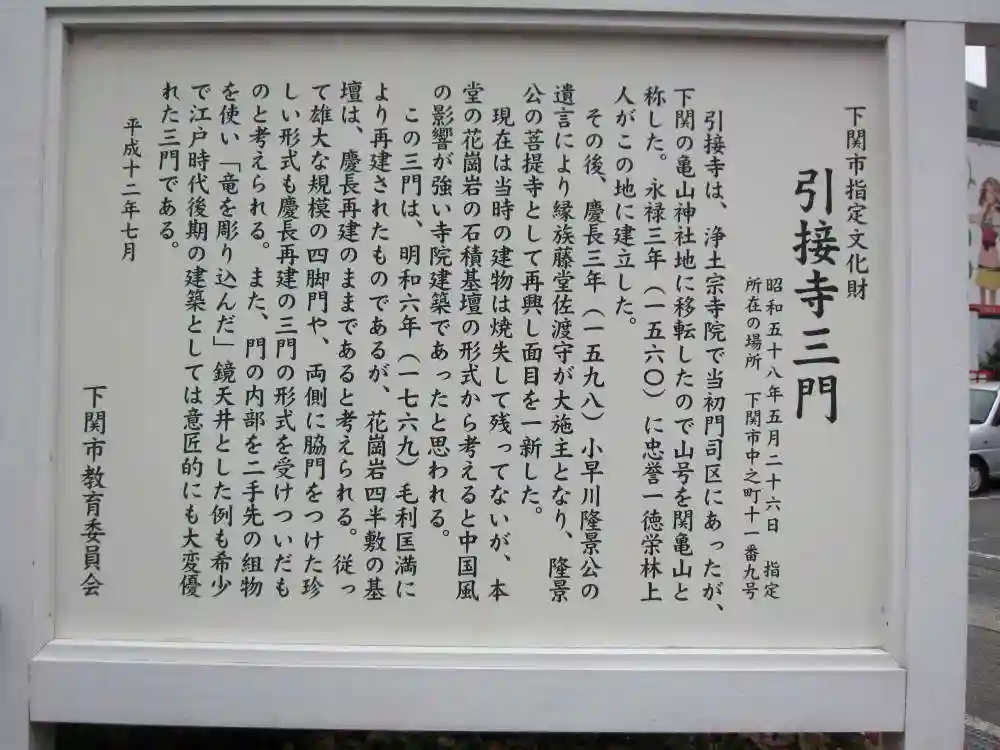 下関市指定文化財
引接寺三門
昭和五十八年五月二十六日　指定
所在の場所　下関市中之町十一番九号
引接寺は、浄土宗寺院で当初門司区にあったが、
下関の亀山神社地に移転したので山号を関亀山と
称した。永禄三年（一五六〇）に忠誉一徳栄林上
人がこの地に建立した。
その後、慶長三年（一五九八）小早川隆景公の
遺言により縁族藤堂佐渡守が大施主となり、隆景
公の菩提寺として再興し面目を一新した。
現在は当時の建物は焼失して残ってないが、本
堂の花崗岩の石積基壇の形式から考えると中国風
の影響が強い寺院建築であったと思われる。
この三門は、明和六年（一七六九）毛利匡満に
より再建されたものであるが、花崗岩四半敷の基
壇は、慶長再建のままであると考えられる。従っ
て雄大な規模の四脚門や、両側に脇門をつけた珍
しい形式も慶長再建の三門の形式を受けついだも
のと考えられる。また、門の内部を二手先の組物
を使い「竜を彫り込んだ」鏡天井とした例も希少
で江戸時代後期の建築としては意匠的にも大変優
れた三門である。
平成十二年七月
下関市教育委員会